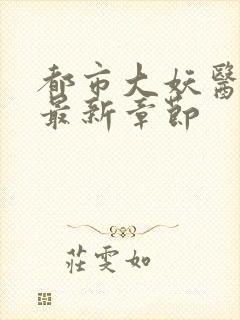 都市大妖醫
最新章節
莊雯如